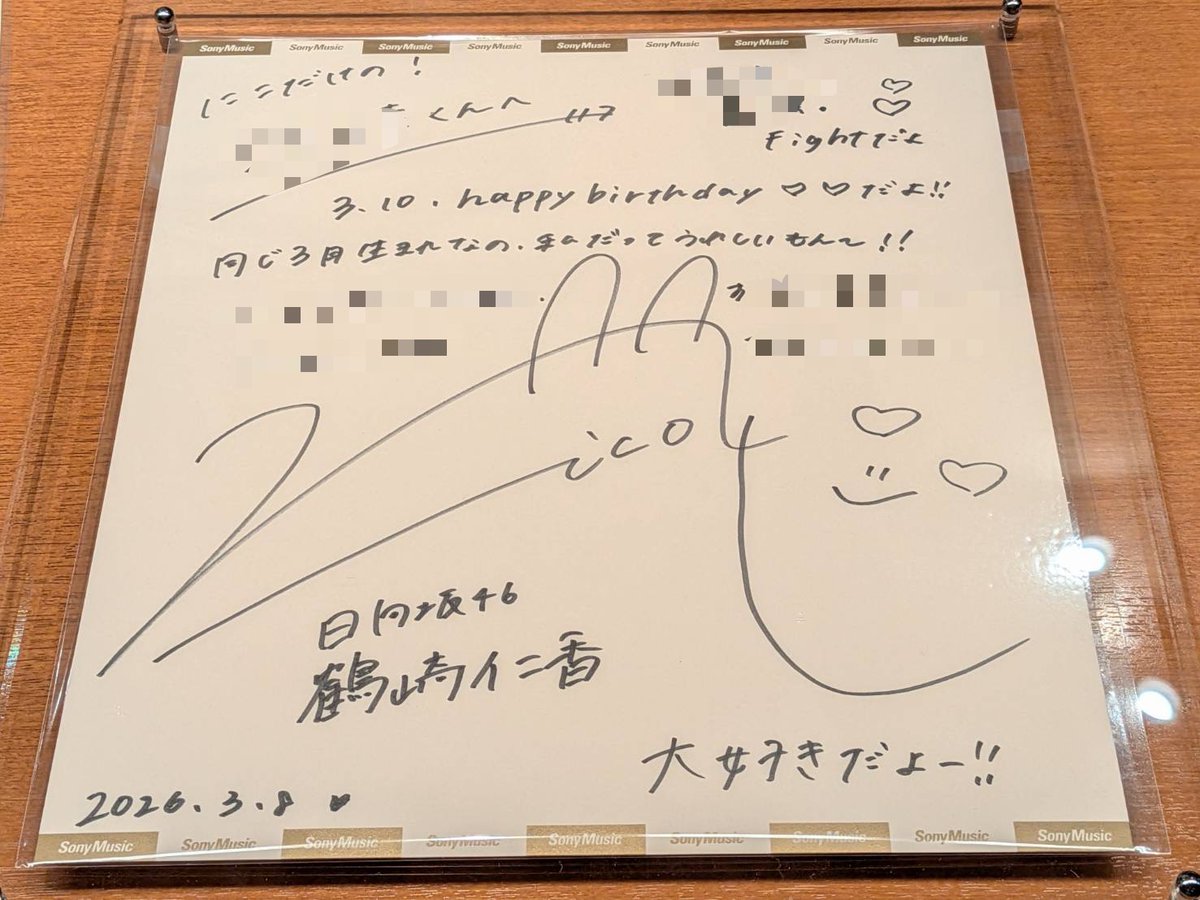 SonyMusic SonyMusic SonyMusic SonyMusic SonyMusic SonyMusic SonyMusic SonyMusic SonyMusic
にこだけの!
くんへ
♡
♡
Fightだよ
3.10.happy birthday ♡ ♡ だよ!!
同じ3月生まれなの、私だってうれしいもん〜!!
か
icol
日向坂46
鶴崎仁香
大好きだよー!!
2026.3.8 ♥
SonyMusic SonyMusic SonyMusic SonyMusic SonyMusic SonyMusic SonyMusic SonyMusic SonyMusic